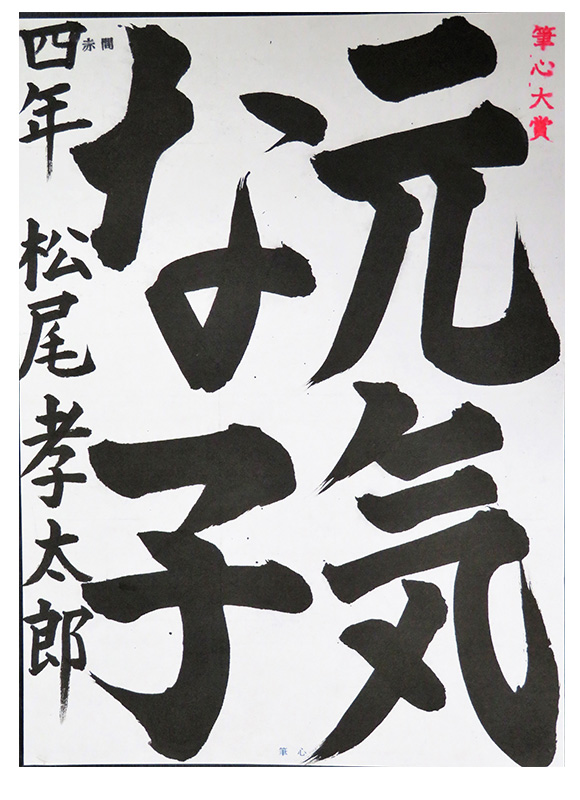 筆心大賞
元気
な子
赤間
四年 松尾孝太郎
筆心